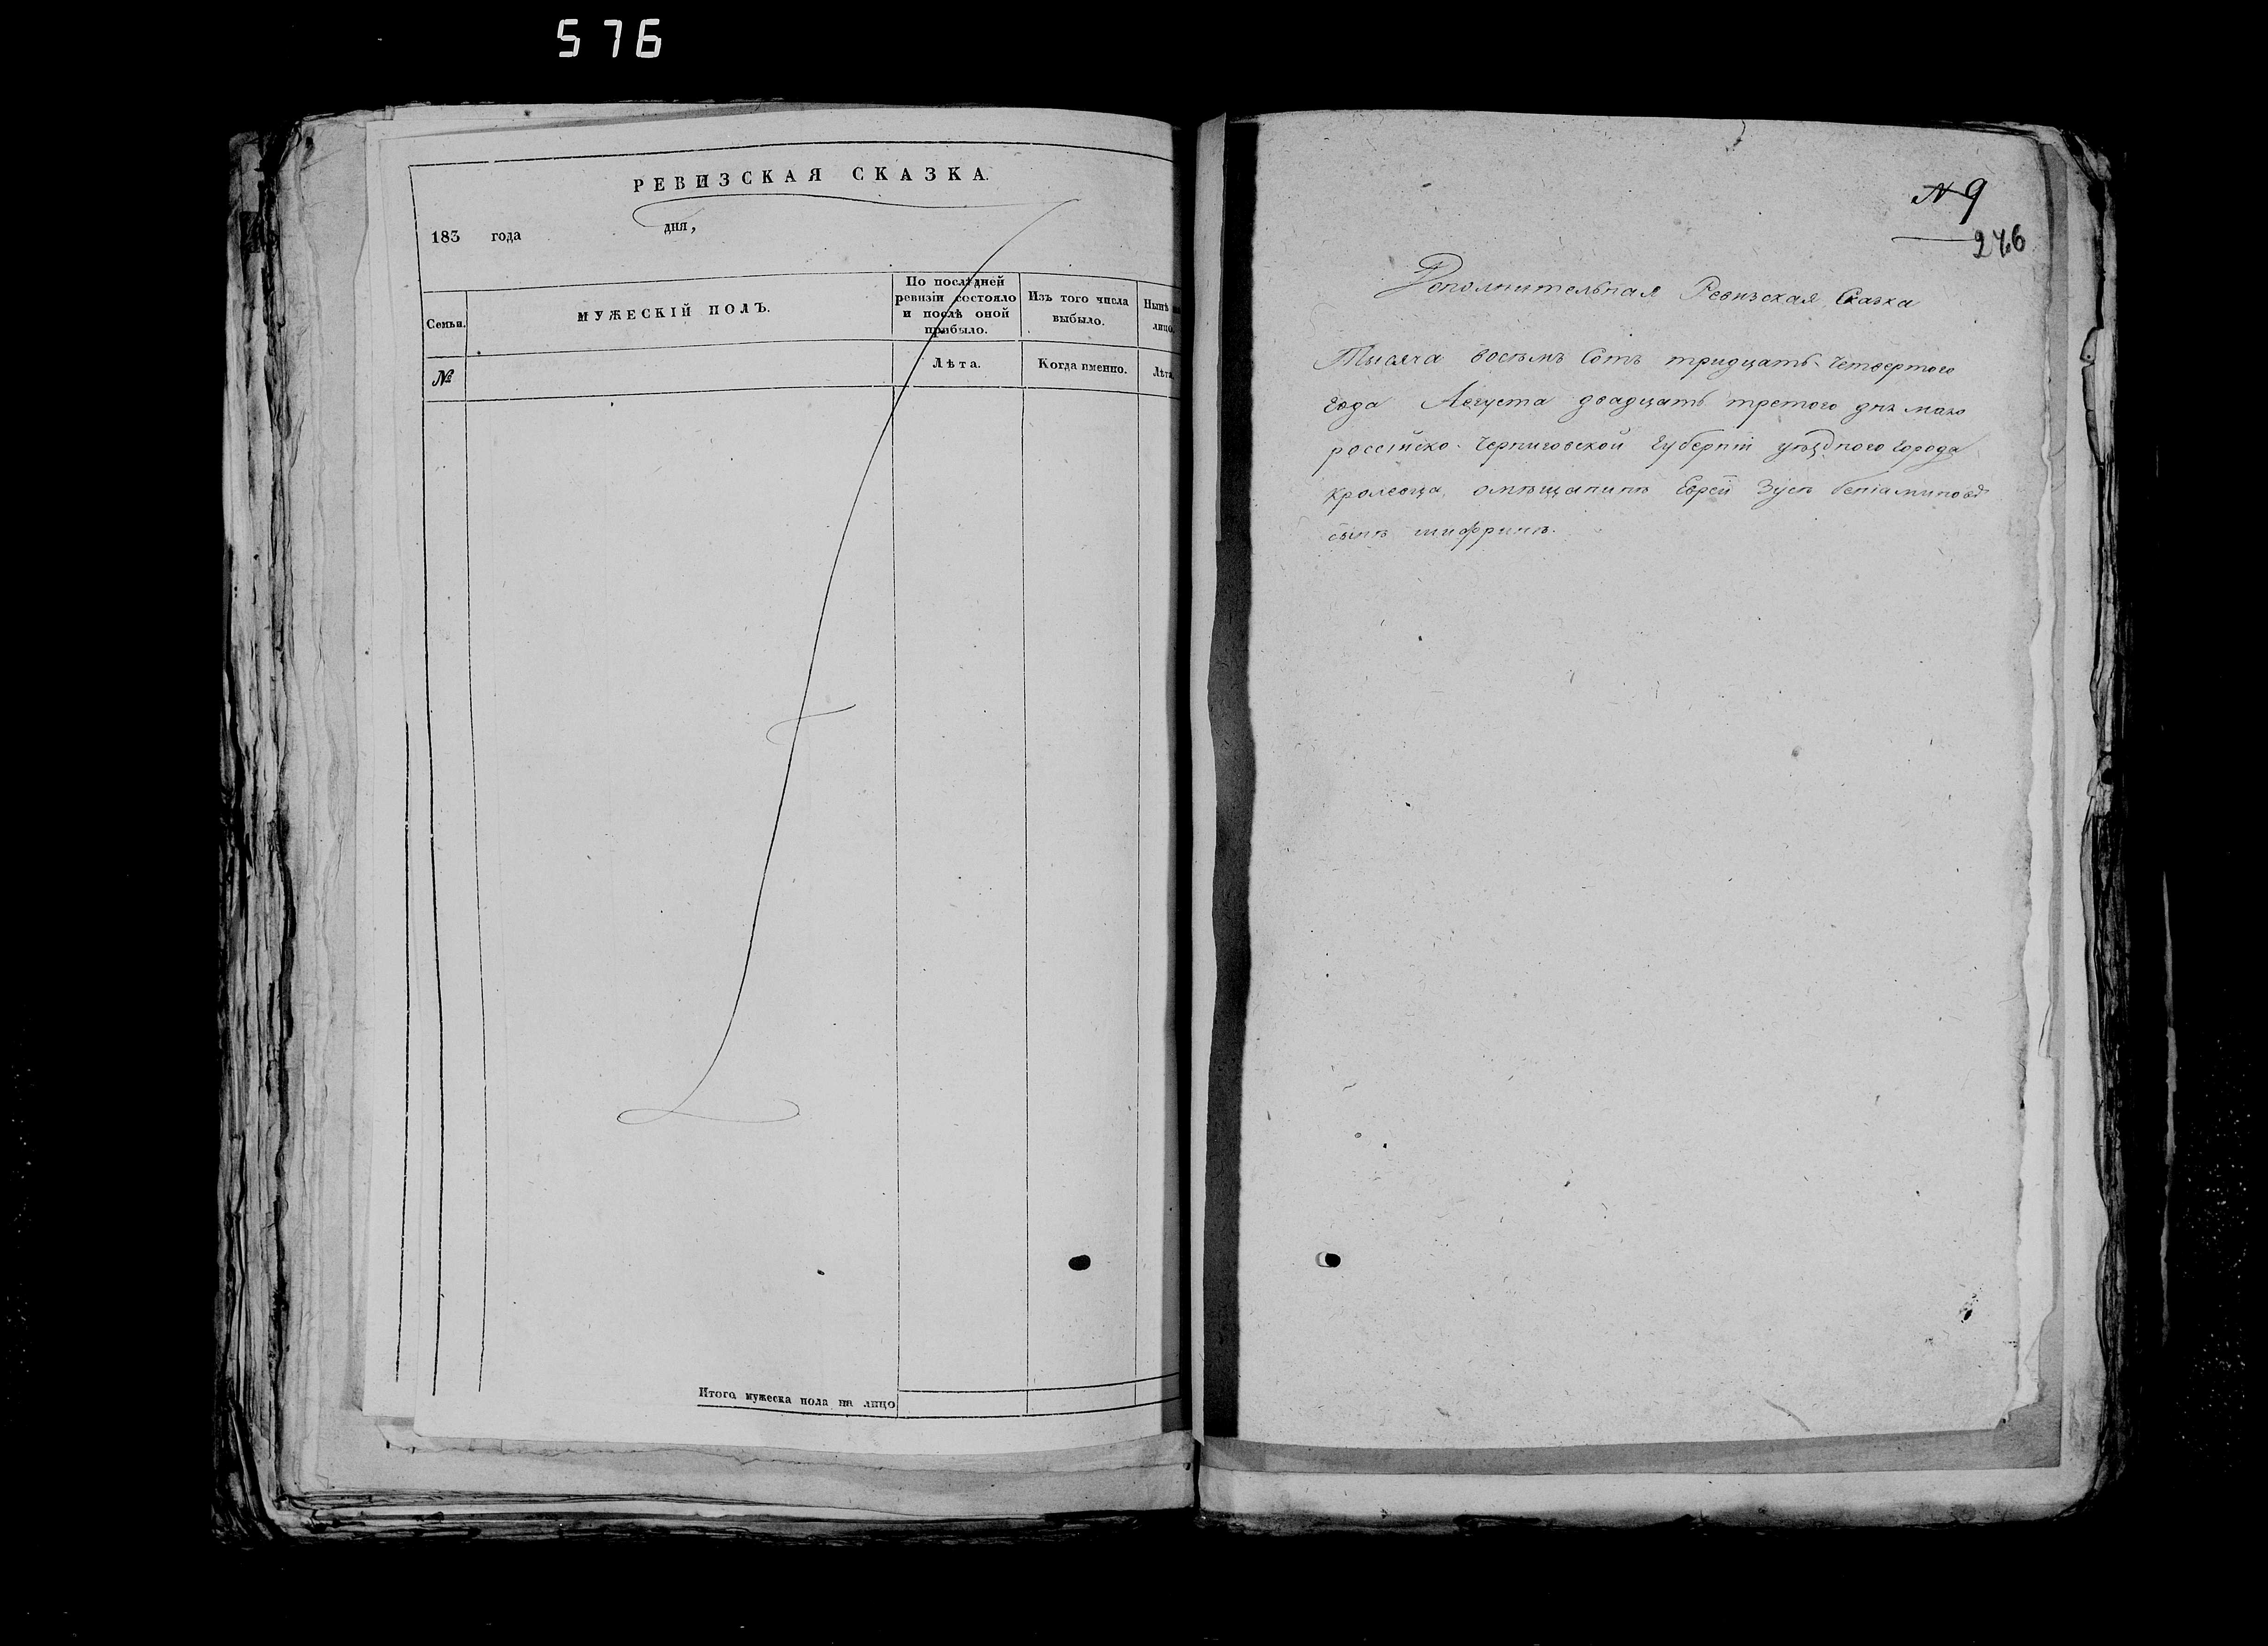 576
РЕВИЗСКАЯ СКАЗКА.
183 года дня,
Семьи.
МУЖЕСКІЙ ПОЛЪ.
По послѣдней
ревизіи состояло
и послѣ оной
прибыло.
Изъ того числа
выбыло.
Нынѣ
лицо.
№
Лѣта.
Когда именно.
Лѣта.
Итого мужеска пола на лицо
№ 9
276
Дополнительная Ревизская Сказка
Тысяча восемъ Сотъ тридцать Четвертого
Года Августа двадцать третого дня мало
россійско Черниговской Губерніи уѣздного Города
Кролевца омѣщанинѣ Еврей Зусѣ беніаминовѣ
сынѣ шифринѣ.